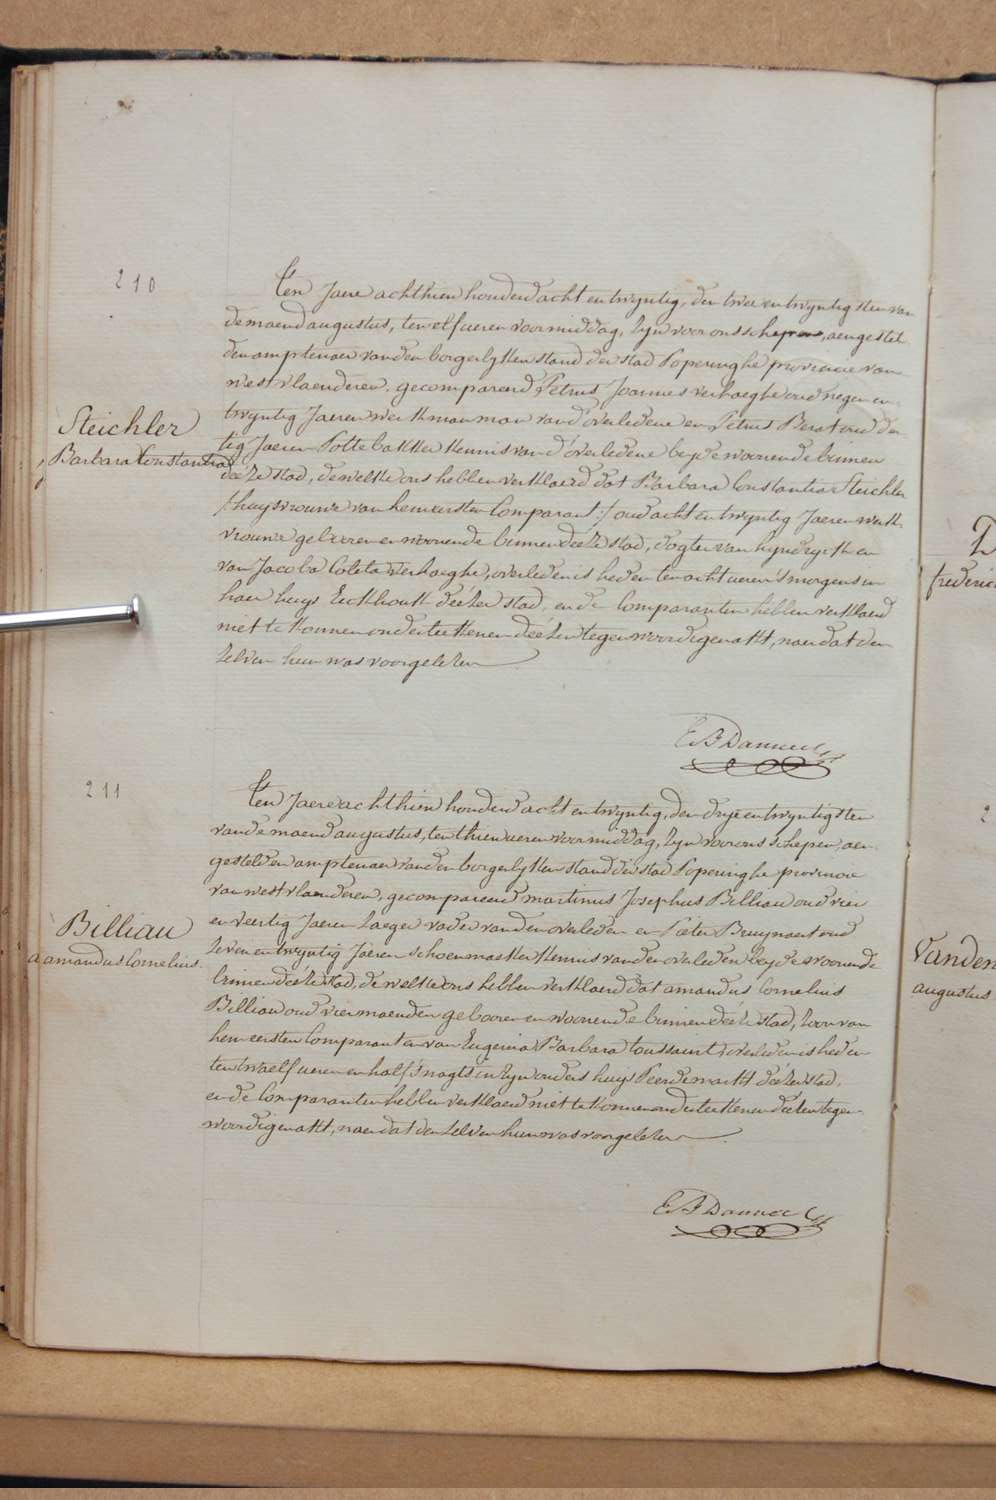 210
Steichler
Barbara Constantia
Ten Jaere achthien honderd acht en twyntig, den twee en twyntigsten van
de maend augustus, ten elf ueren voormiddag, zyn voor ons schepen, aengestel
den amptenaer van den borgerlyken stand der stad Poperinghe provincie van
westvlaenderen, gecompareerd Petrus Joannes verhaeghe oud negen en
twyntig Jaeren werkman man van d'overledene en Petrus Berat oud der
tig Jaeren Pottebakker kennis van d'overledene beyde woonende binnen
deéze stad, dewelke ons hebben verklaerd dat Barbara Constantia Steichler
/:huysvrouwe van hem eersten Comparant:/ oud acht en twyntig Jaeren werk
vrouwe gebooren en woonende binnen deéze stad, dogter van en
van Jacoba Coleta verhaeghe, overleden is heden ten acht ueren s'morgens in
haer huys Eekhoutt deézer stad, en de Comparanten hebben verklaerd
niet te konnen onderteekenen deézen tegenwoordigen akt, naer dat den
zelven hun was voorgelezen
E B Dannee
211
Billiau
amandus Cornelius
Ten Jaere achthien honderd acht en twyntig, den drye en twyntigsten
van de maend augustus, ten thien ueren voormiddag, zyn voor ons schepen, aen-
gestelden amptenaer van den borgerlyken stand der stad Poperinghe provincie
van westvlaenderen, gecompareerd martinus Josephus Billiau oud vier
en veertig Jaeren zaeger vader van den overleden en Pieter Bruynaert oud
zeven en twyntig Jaeren schoenmaeker kennis van den overleden beyde woonende
binnen deéze stad, dewelke ons hebben verklaerd dat amandus Cornelius
Billiau oud vier maenden gebooren en woonende binnen deéze stad, zoon van
hem eersten Comparant en van Eugenia Barbara toussaint, overleden is heden
ten twaelf ueren en half s'nagts in zyn ouders huys Peerdemarkt deézer stad,
en de Comparanten hebben verklaerd niet te konnen onderteekenen deézen tegen-
woordigen akt, naer dat den zelven hun was voorgelezen
E B Dannee
frederic
Vanden
augustus